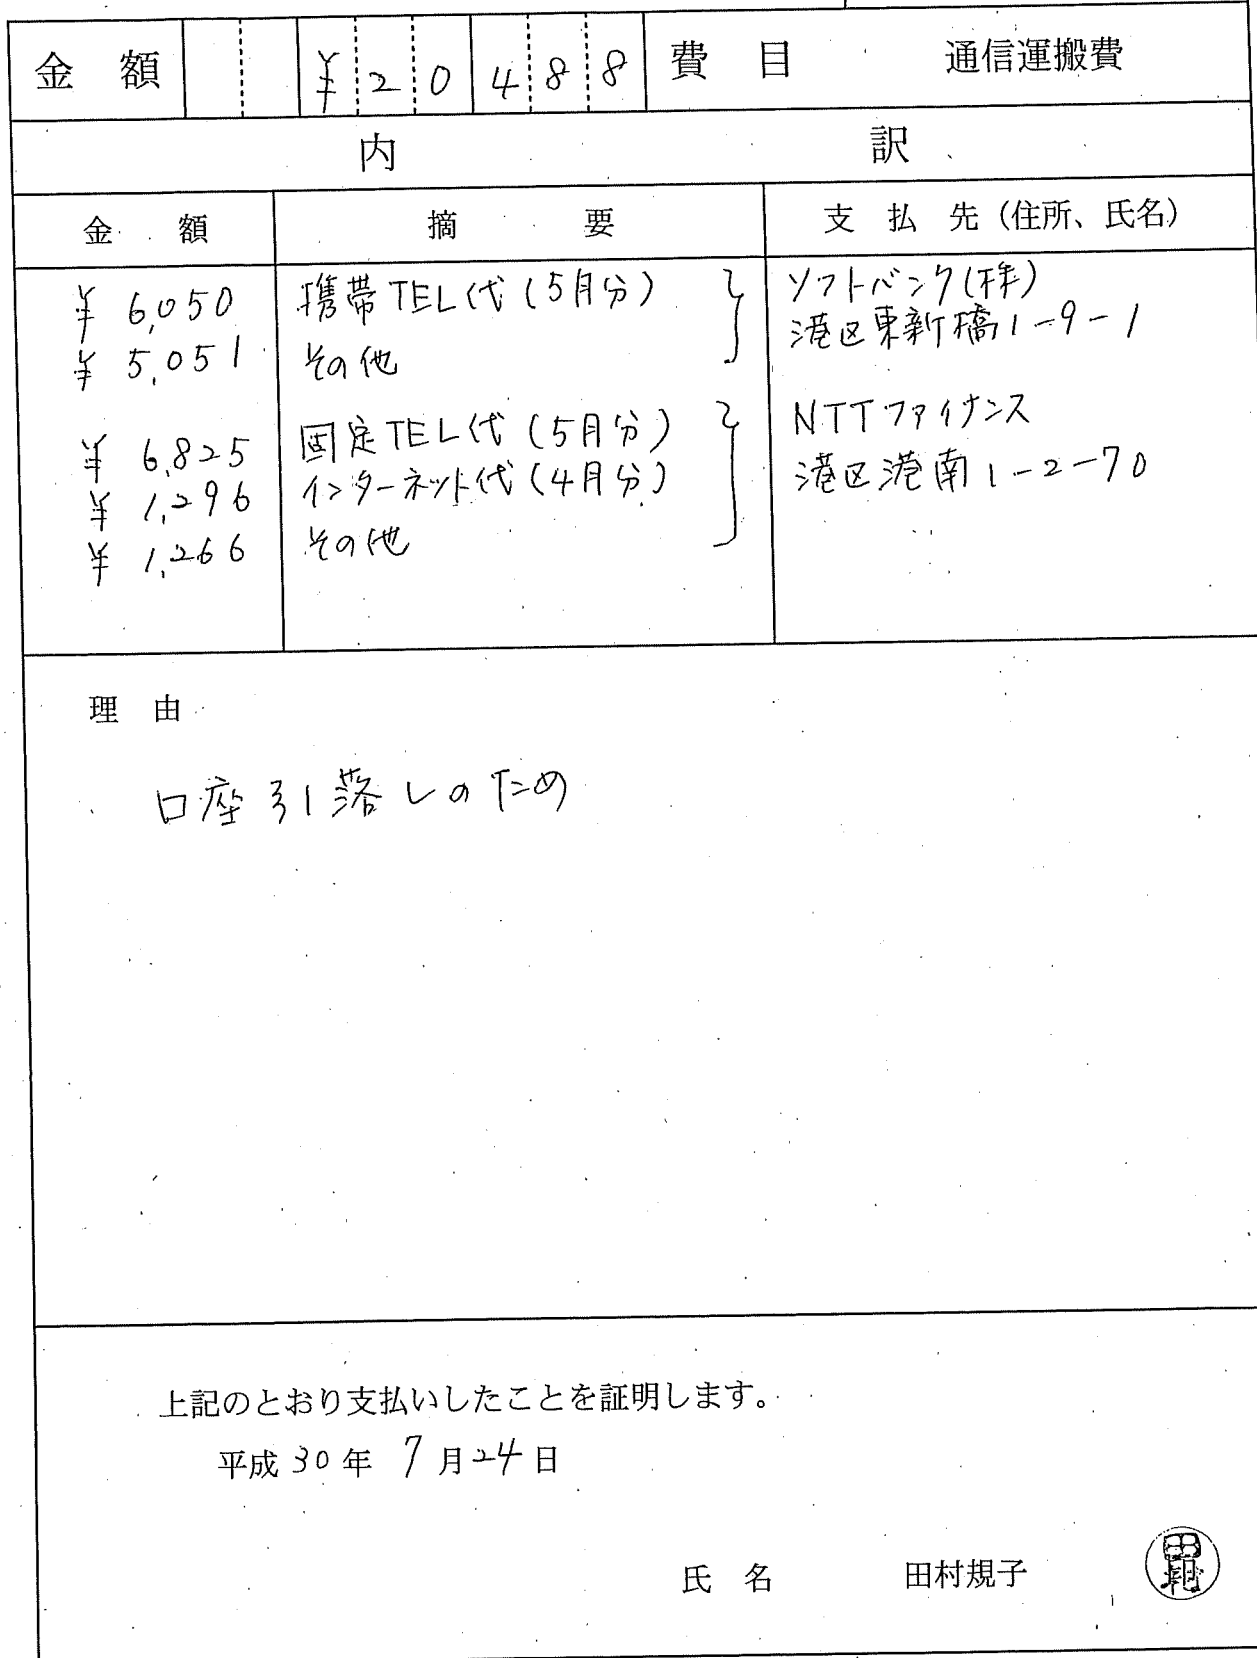 金 額 ¥20488 費 目 通信運搬費
内 訳
金 額 摘 要 支 払 先 (住所、氏名)
¥ 6,050 携帯TEL代(5月分) ソフトバンク(株)
港区東新橋1-9-1
¥ 5,051 その他
¥ 6,825 固定TEL代(5月分) NTTファイナンス
¥ 1,296 インターネット代(4月分) 港区港南1-2-70
¥ 1,266 その他
理 由
口座引落しのため
上記のとおり支払いしたことを証明します。
平成 30 年 7 月 24 日
氏 名 田村規子 田村